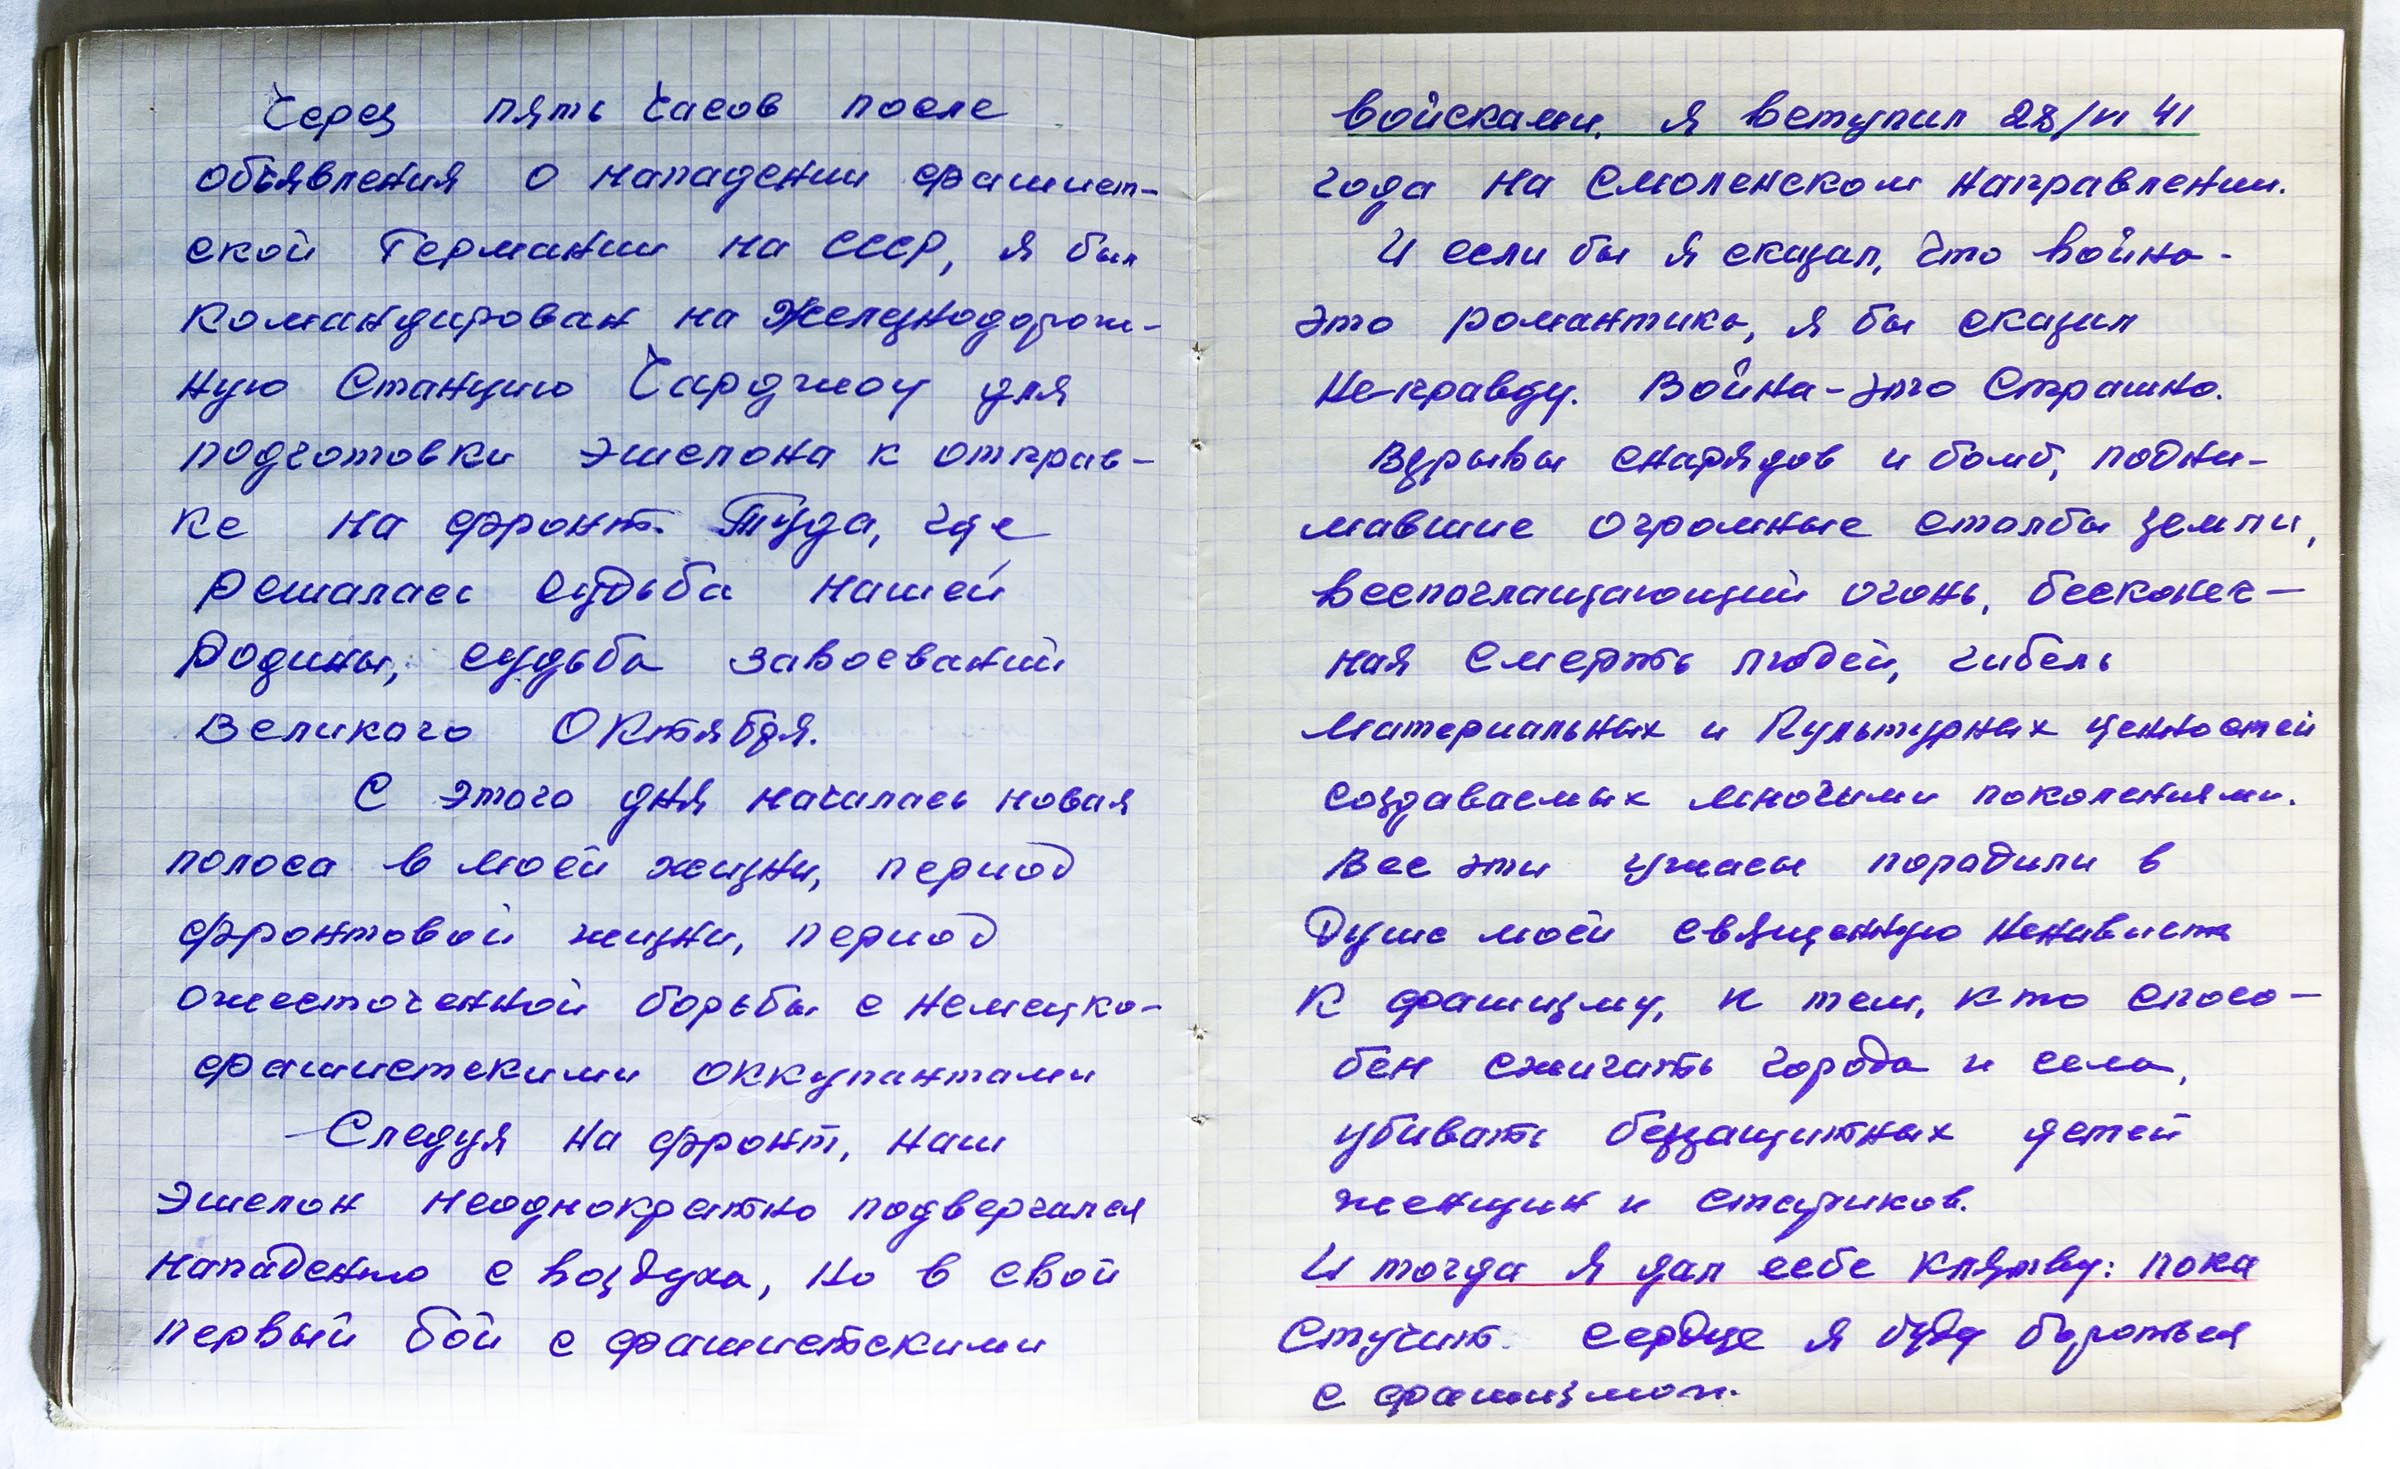 Через пять часов после
объявления о нападении фашист-
ской Германии на СССР, я был
командирован на железнодорож-
ную станцию Чарджоу для
подготовки эшелона к отправ-
ке на фронт. Туда, где
решалась судьба нашей
Родины, судьба завоеваний
Великого Октября.
С этого дня началась новая
полоса в моей жизни, период
фронтовой жизни, период
ожесточенной борьбы с немецко-
фашистскими оккупантами
Следуя на фронт, наш
эшелон неоднократно подвергался
нападению с воздуха, но в свой
первый бой с фашистскими
войсками, я вступил 28/VI 41
года на Смоленском направлении.
И если бы я сказал, что война-
это романтика, я бы сказал
не-правду. Война-это страшно.
Взрывы снарядов и бомб, подни-
мавшие огромные столбы земли,
всепоглащающий огонь, бесконеч-
ная смерть людей, гибель
материальных и культурных ценностей
создаваемых многими поколениями.
Все эти ужасы породили в
душе моей священную ненависть
к фашизму, к тем, кто спосо-
бен сжигать города и села,
убивать беззащитных детей
женщин и стариков.
И тогда я дал себе клятву: пока
стучит сердце я буду бороться
с фашизмом.